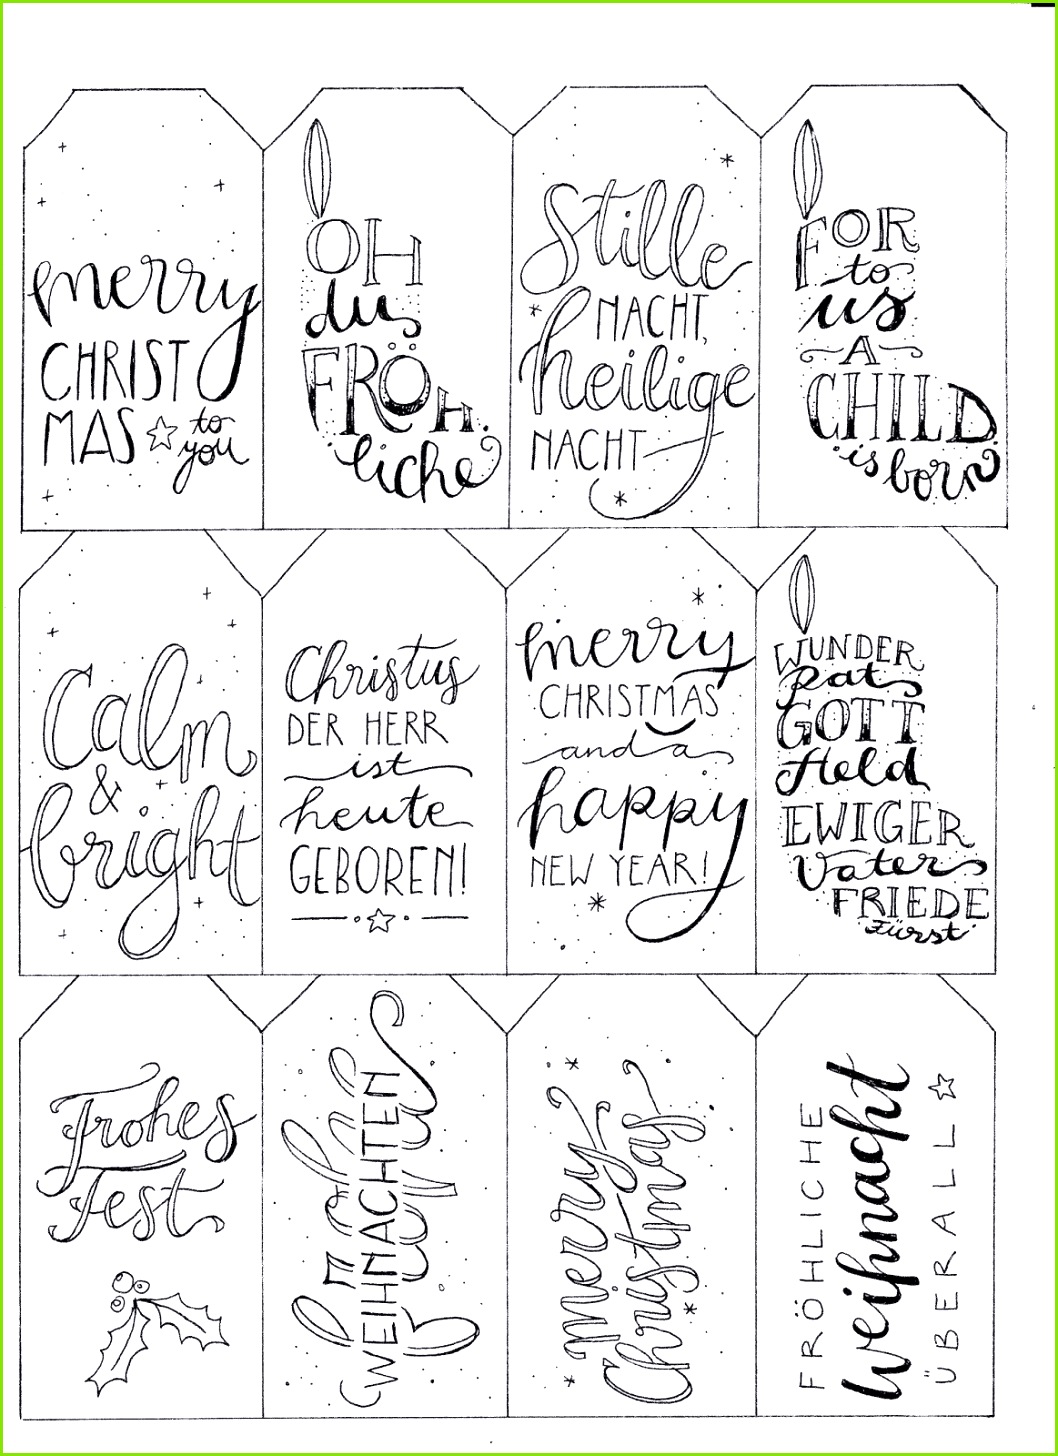 merry
CHRIST
MAS to
you
OH
du
FRÖH
liche
Stille
NACHT,
heilige
NACHT
FOR
to
us
A
CHILD
is born
Calm
&
bright
Christus
DER HERR
ist
heute
GEBOREN!
merry
CHRISTMAS
and a
happy
NEW YEAR!
WUNDER
Rat
GOTT
Held
EWIGER
Vater
FRIEDE
Fürst
Frohes
Fest
WEIHNACHTEN
merry
Christmas
FRÖHLICHE
Weihnacht
ÜBERALL